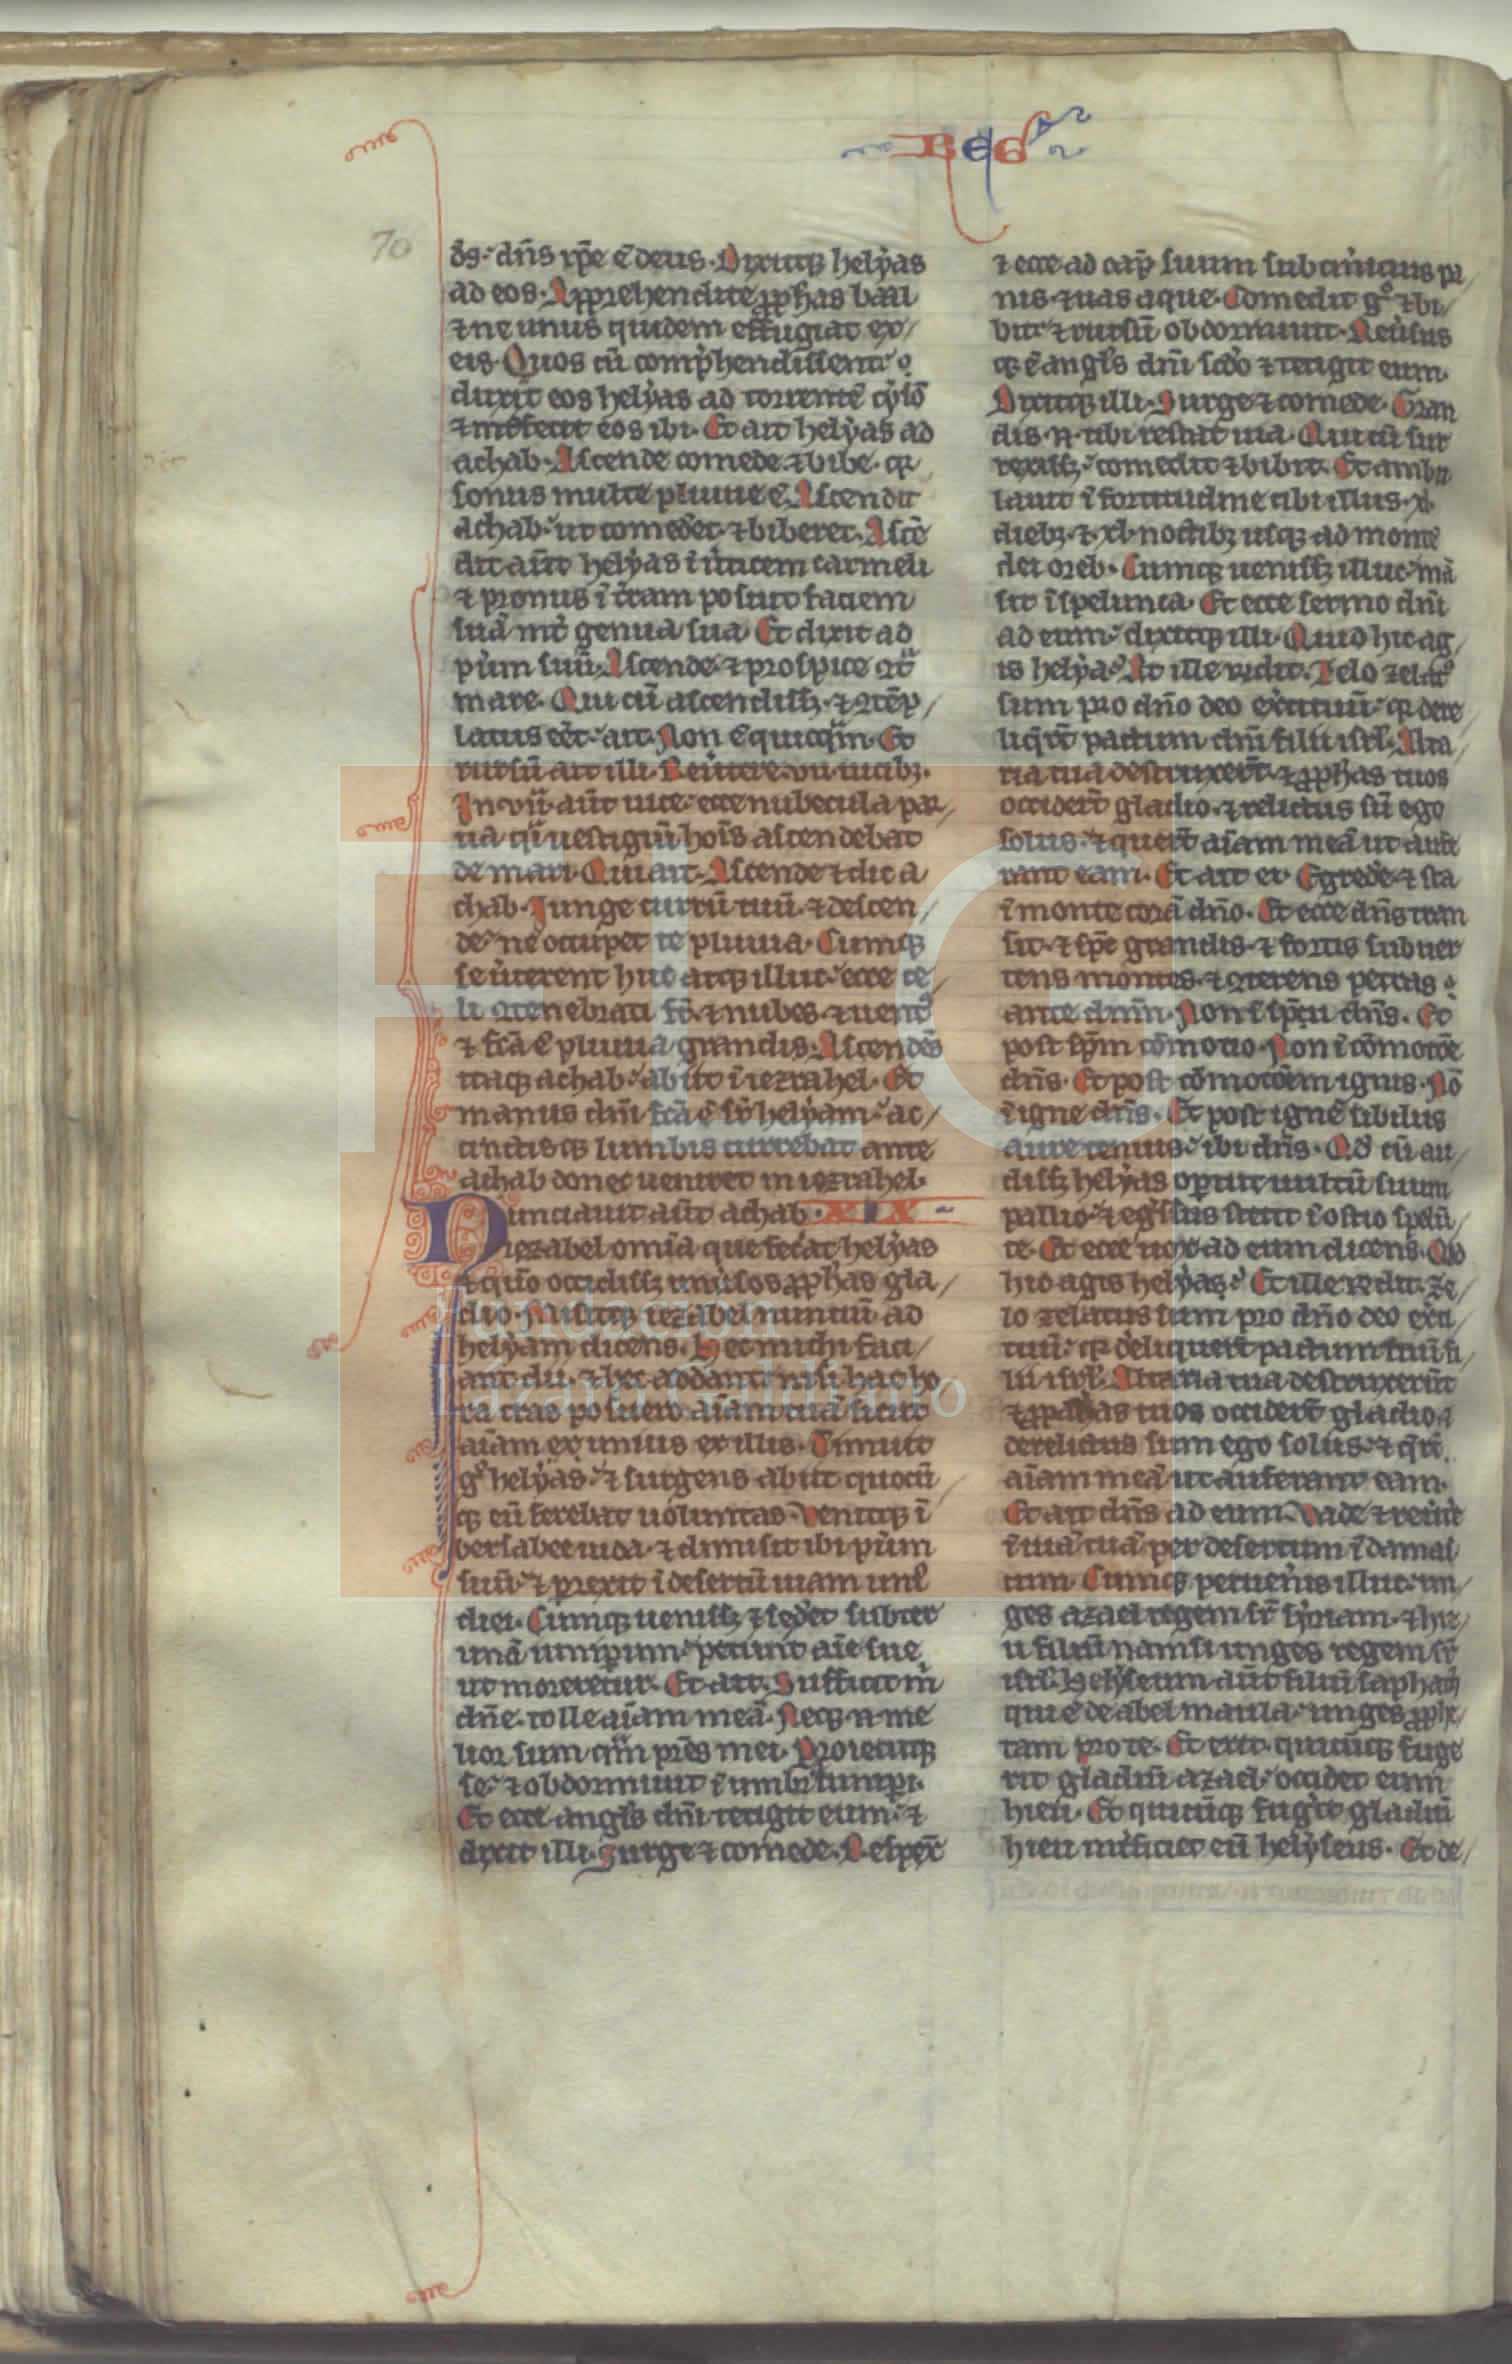 REG
70
ds. dn̄s ip̄e ē deus. Dixitq helyas
ad eos. Apprehendite prophas baal
⁊ ne unus quidem effugiat ex/
eis. Quos cū comp̄hendissent
duxit eos helyas ad torrentē cyson
⁊ int̄fecit eos ibi. Et ait helyas ad
achab. Ascende comede ⁊ bibe. qr
sonus multe pluuie ē. Ascendit
achab. ut comed̄et ⁊ biberet. Ascē
dit aūt helyas ī ūticem carmeli
⁊ pronus ī t̄ram posuit faciem
suā int̄ genua sua. Et dixit ad
pūm suū. Ascende ⁊ prospice ꝯt̄
mare. Qui cū ascendiss; ⁊ ꝯtēp/
latus eēt. ait. Non ē quicq̄m. Et
rursū ait illi. Reūtere .vii. uicib;.
In .vii. aūt uice. ecce nubecula par/
ua qi uestigiū hoīs ascendebat
de mari. Qui ait. Ascende ⁊ dic a
chab. Iunge currū tuū ⁊ descen/
de. ne occupet te pluuia. Cumq
se ūterent huc atq illuc. ecce ce/
li ꝯtenebrati st̄. ⁊ nubes ⁊ uent᾽
⁊ fc̄a ē pluuia grandis. Ascendēs
itaq achab. abiit ī iezrahel. Et
manus dn̄i fc̄a ē sr̄ helyam. ac/
cinctisq lumbis currebat ante
achab donec ueniret in iezrahel.
Nunciauit aūt achab . XIX .
iezabel omīa que fec̄at helyas
⁊ quō occidiss; uniūsos prophas gla/
dio. Misitq iezabel nunciū ad
helyam dicens. Hec michi faci/
ant dii. ⁊ hec addant nisi hac ho
ra cras posuero aīam tuā sicut
aīam ex unius ex illis. Timuit
gᵒ helyas. ⁊ surgens abiit quocū
q eū ferebat uoluntas. Venitq ī
bersabee iuda. ⁊ dimisit ibi pūm
suū. ⁊ prexit ī desertū uiam uni᾽
diei. Cumq ueniss; ⁊ sed̄et subter
unā iunip̄um. petiuit aīe sue
ut moreretur. Et ait. Sufficit m̄
dn̄e. tolle aīam meā. Neq n̄ me
lior sum qm̄ prēs mei. Proiecitq
se. ⁊ obdormiuit ī umbr̄ iunip̄i.
Et ecce angl̄s dn̄i tetigit eum. ⁊
dixit illi. Surge ⁊ comede. Respex̄
⁊ ecce ad cap̄ suum subcinicius pa/
nis. ⁊ uas aque. Comedit gᵒ ⁊ bi/
bit ⁊ rursū obdormiuit. Reūsus
q ē angl̄s dn̄i scd̄o ⁊ tetigit eum.
Dixitq illi. Surge ⁊ comede. Gran
dis n̄ tibi restat uia. Qui cū sur
rexiss;. comedit ⁊ bibit. Et ambu
lauit ī fortitudine cibi illius .xl.
dieb; ⁊ .xl. noctib; usq ad monte
dei oreb. Cumq ueniss; illuc. mā
sit ī spelunca. Et ecce sermo dn̄i
ad eum. dixitq illi. Quid hic ag/
is helya. At ille r̄ndit. Zelo zelat᾽
sum pro dn̄o deo exercituū. qr dere
liqr̄t pactum dn̄i filii isrl̄. Alta/
ria tua destruxer̄t. ⁊ prophas tuos
occider̄t gladio. ⁊ relictus sū ego
solus. ⁊ quer̄t aīam meā ut aufe
rant eam. Et ait ei. Egred̄e ⁊ sta
ī monte corā dn̄o. Et ecce dn̄s tran
sit. ⁊ sp̄c grandis. ⁊ fortis subuer
tens montes. ⁊ ꝯterens petras.
ante dn̄m. Non ī sp̄u dn̄s. Et
post sp̄m cōmotio. Non ī cōmotōe
dn̄s. Et post cōmotōem ignis. Nō
ī igne dn̄s. Et post ignē sibilus
aure tenuis. ibi dn̄s. Qd̄ cū au/
diss; helyas operuit uultū suum
pallio. ⁊ egr̄ssus stetit ī ostio spelū/
ce. Et ecce uox ad eum dicens. Qid
hic agis helyas. Et ille r̄ndit. Ze/
lo zelatus sum pro dn̄o deo exci/
tuū. qr deliquer̄t pactum tuū fi/
lii isrl̄. Altaria tua destruxerūt
⁊ prophas tuos occider̄t gladio.
derelictus sum ego solus. ⁊ qr̄t
aīam meā ut auferant eam.
Et ait dn̄s ad eum. Vade ⁊ reūte
ī uiā tuā per desertum ī damas/
cum. Cumq perueīs illuc. un/
ges azael regem sr̄ syriam. ⁊ hie/
u filiū namsi unges regem sr̄
isrl̄. Helyseum aūt filiū saphath
qui ē de abel maula. unges prophe/
tam pro te. Et erit. quicūq fuge
rit gladiū azael. occidet eum
hieu. Et quicūq fuḡit gladiū
hieu int̄ficiet eū helyseus. Et de/
FLG
Fundación
Lázaro Galdiano